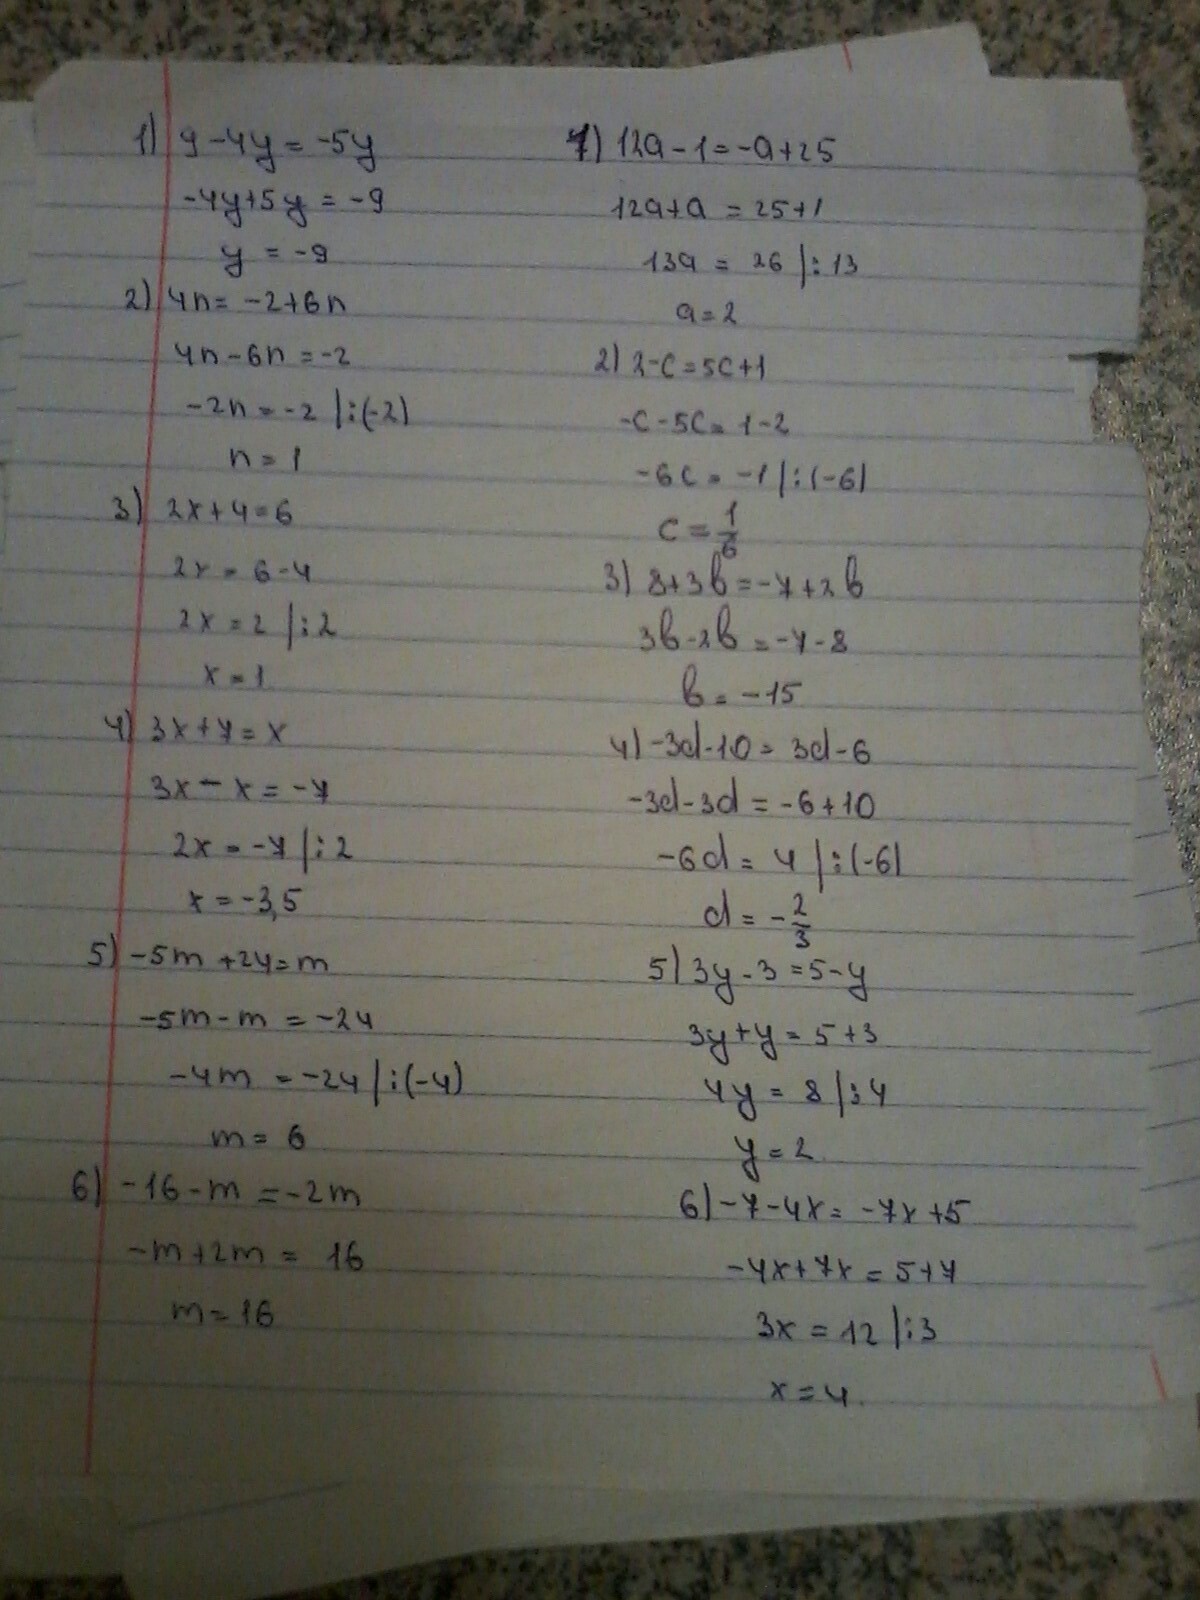 1) 9-4y=-5y
-4y+5y=-9
y=-9
2) 4n=-2+6n
4n-6n=-2
-2n=-2 |:(-2)
n=1
3) 2x+4=6
2x=6-4
2x=2 |:2
x=1
4) 3x+7=x
3x-x=-7
2x=-7 |:2
x=-3,5
5) -5m+24=m
-5m-m=-24
-4m=-24 |:(-4)
m=6
6) -16-m=-2m
-m+2m=16
m=16
1) 12a-1=-a+25
12a+a=25+1
13a=26 |:13
a=2
2) 2-c=5c+1
-c-5c=1-2
-6c=-1 |:(-6)
c=1/6
3) 8+3b=-7+2b
3b-2b=-7-8
b=-15
4) -3d-10=3d-6
-3d-3d=-6+10
-6d=4 |:(-6)
d=-2/3
5) 3y-3=5-y
3y+y=5+3
4y=8 |:4
y=2
6) -7-4x=-7x+5
-4x+7x=5+7
3x=12 |:3
x=4.